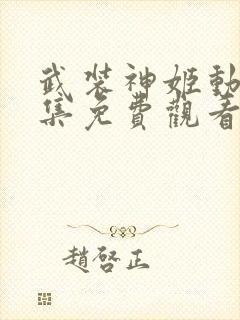 武裝神姬動
集免費觀看
趙啓正